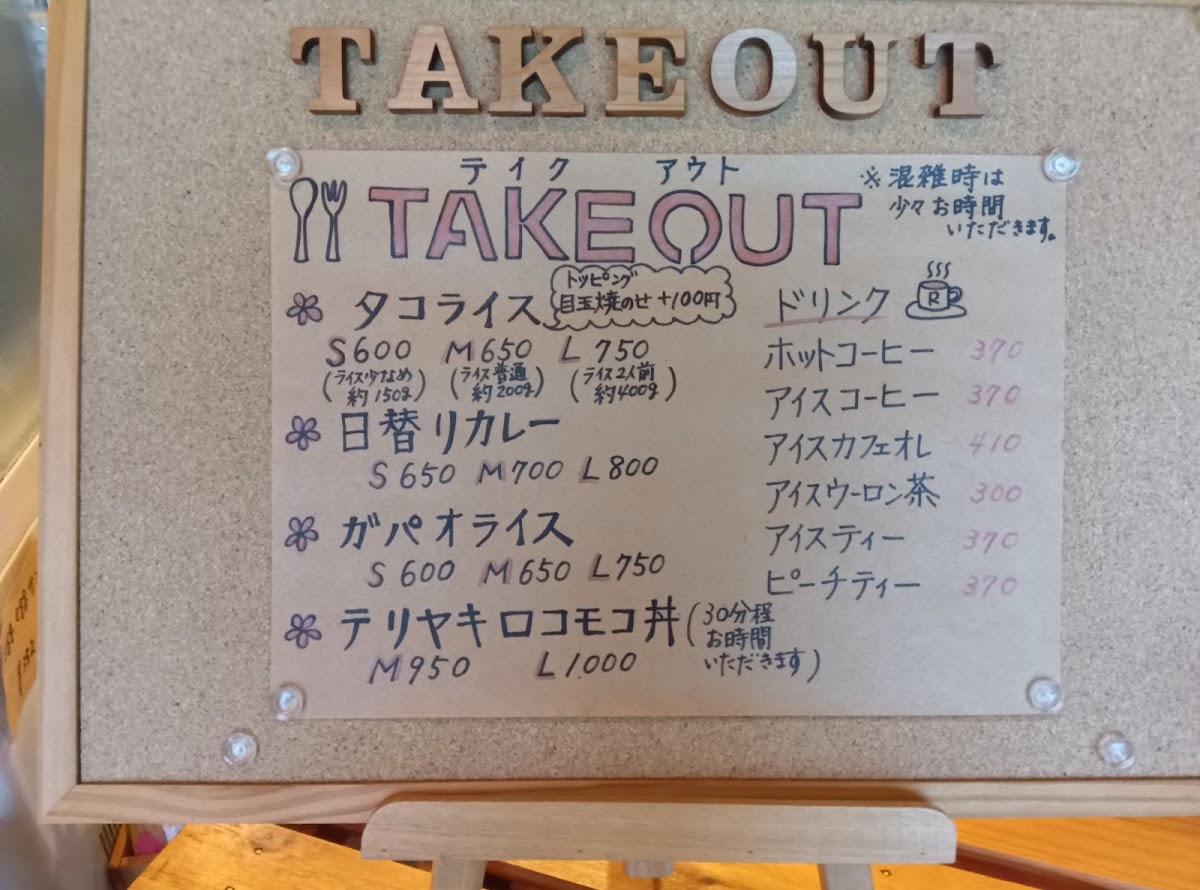 TAKEOUT
テイク アウト
TAKEOUT
※混雑時は
少々お時間
いただきます。
タコライス
トッピング
目玉焼のせ +100円
S600 M650 L 750
(ライス少なめ 約150g) (ライス普通 約200g) (ライス2人前 約400g)
日替りカレー
S 650 M700 L800
ガパオライス
S 600 M650 L750
テリヤキロコモコ丼
(30分程
お時間
いただきます)
M950 L1.000
ドリンク
R
ホットコーヒー 370
アイスコーヒー 370
アイスカフェオレ 410
アイスウーロン茶 300
アイスティー 370
ピーチティー 370